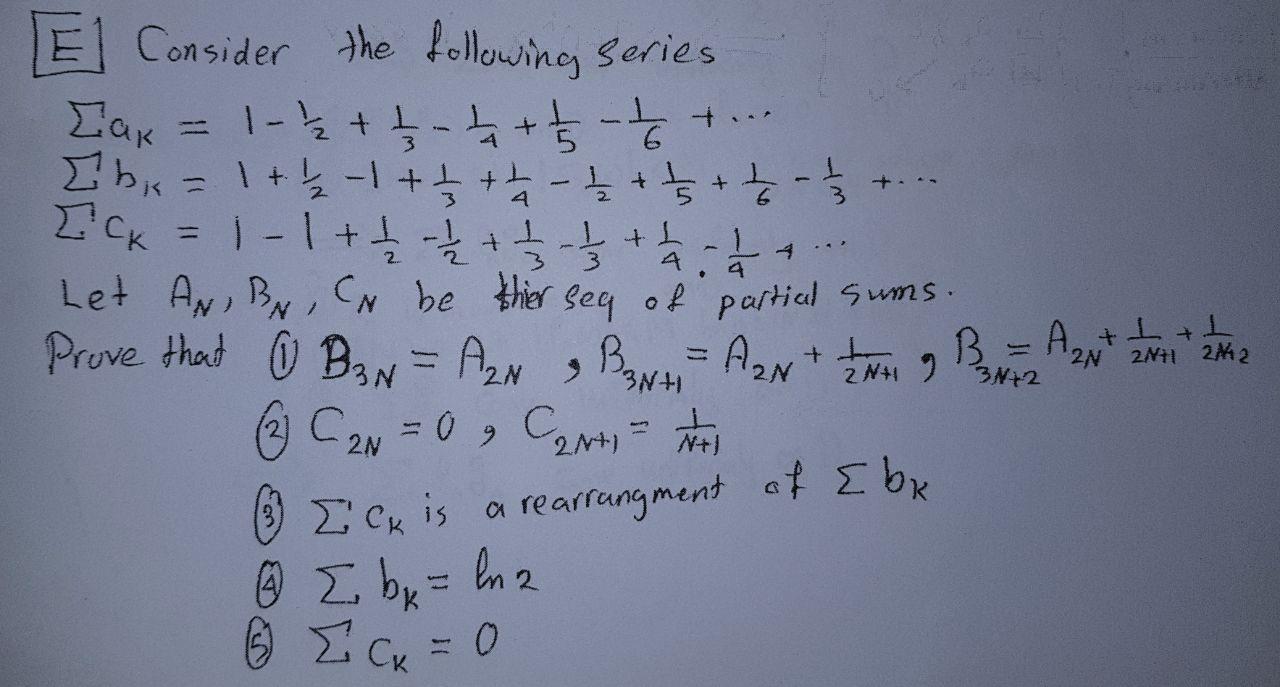 E Consider the following series
Σaₖ = 1 - 1/2 + 1/3 - 1/4 + 1/5 - 1/6 + ...
Σbₖ = 1 + 1/2 - 1 + 1/3 + 1/4 - 1/2 + 1/5 + 1/6 - 1/3 + ...
Σcₖ = 1 - 1 + 1/2 - 1/2 + 1/3 - 1/3 + 1/4 - 1/4 + ...
Let A_N, B_N, C_N be thier seq of partial sums.
Prove that ① B_3N = A_2N , B_3N+1 = A_2N + 1/2N+1 , B_3N+2 = A_2N + 1/2N+1 + 1/2N+2
② C_2N = 0 , C_2N+1 = 1/N+1
③ Σcₖ is a rearrangment of Σbₖ
④ Σbₖ = ln 2
⑤ Σcₖ = 0